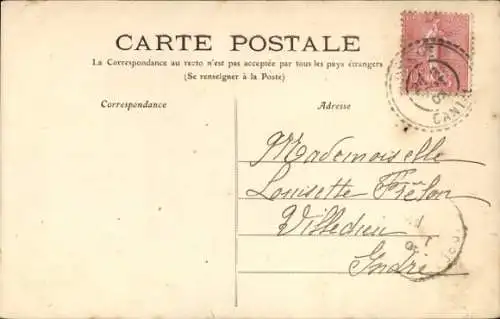 CARTE POSTALE
La Correspondance au recto n'est pas acceptée par tous les pays étrangers
(Se renseigner à la Poste)
Correspondance
Adresse
CANTAL
Mademoiselle
Louisette Frélon
Villedieu
Indre